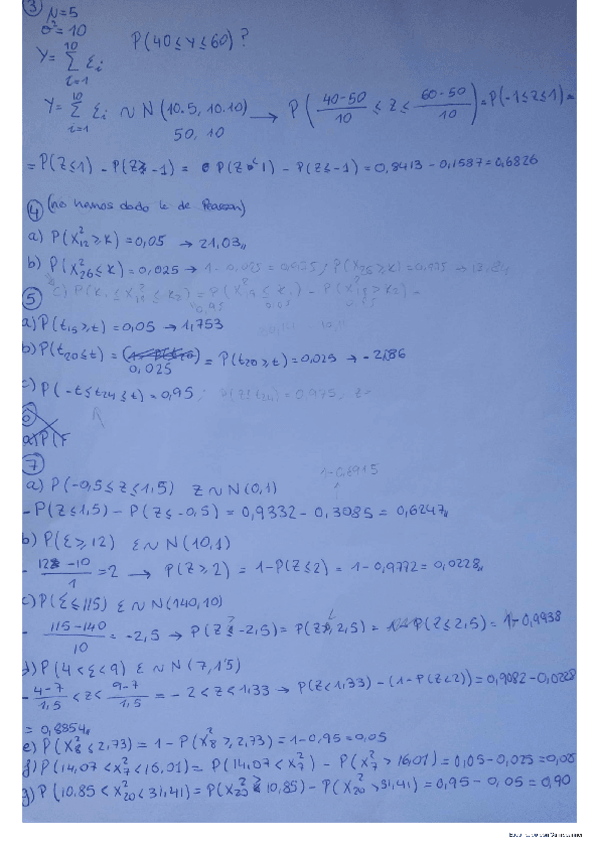 ③ N=5
σ²=10
P(40≤Y≤60)?
Y= Σ_{i=1}^{10} ξi
Y= Σ_{i=1}^{10} ξi ~ N(10·5, 10·10) → P( (40-50)/10 ≤ Z ≤ (60-50)/10 ) = P(-1≤Z≤1) =
50, 10
= P(Z≤1) - P(Z≤-1) = P(Z≤1) - P(Z≤-1) = 0,8413 - 0,1587 = 0,6826
④ (no hemos dado k de Pearson)
a) P(X²12 ≥ K) = 0,05 → 21,03
b) P(X²26 ≤ K) = 0,025 →
⑤
a) P(t15 ≥ t) = 0,05 → 1,753
b) P(t20 ≤ t) = 0,025 = P(t20 ≥ t) = 0,025 → -2,86
c) P(-t ≤ t24 ≤ t) = 0,95
a) P(F
⑦
1-0,6915
a) P(-0,5 ≤ Z ≤ 1,5) Z ~ N(0,1)
- P(Z≤1,5) - P(Z≤-0,5) = 0,9332 - 0,3085 = 0,6247
b) P(ξ ≥ 12) ξ ~ N(10,1)
- (12-10)/1 = 2 → P(Z≥2) = 1-P(Z≤2) = 1-0,9772 = 0,0228
c) P(ξ ≤ 115) ξ ~ N(140,10)
- (115-140)/10 = -2,5 → P(Z ≤ -2,5) = P(Z ≥ 2,5) = 1- P(Z≤2,5) = 1-0,9938
d) P(4<ξ<9) ξ ~ N(7,1'5)
- (4-7)/1,5 < Z < (9-7)/1,5 = -2<Z<1,33 → P(Z<1,33) - (1-P(Z<2)) = 0,9082 - 0,0228
= 0,8854
e) P(X²8 ≤ 2,73) = 1 - P(X²8 ≥ 2,73) = 1-0,95 = 0,05
f) P(14,07 < X²7 < 16,01) = P(14,07 < X²7) - P(X²7 > 16,01) = 0,05-0,025 =
g) P(10,85 < X²20 < 31,41) = P(X²20 ≥ 10,85) - P(X²20 > 31,41) = 0,95 - 0,05 = 0,90